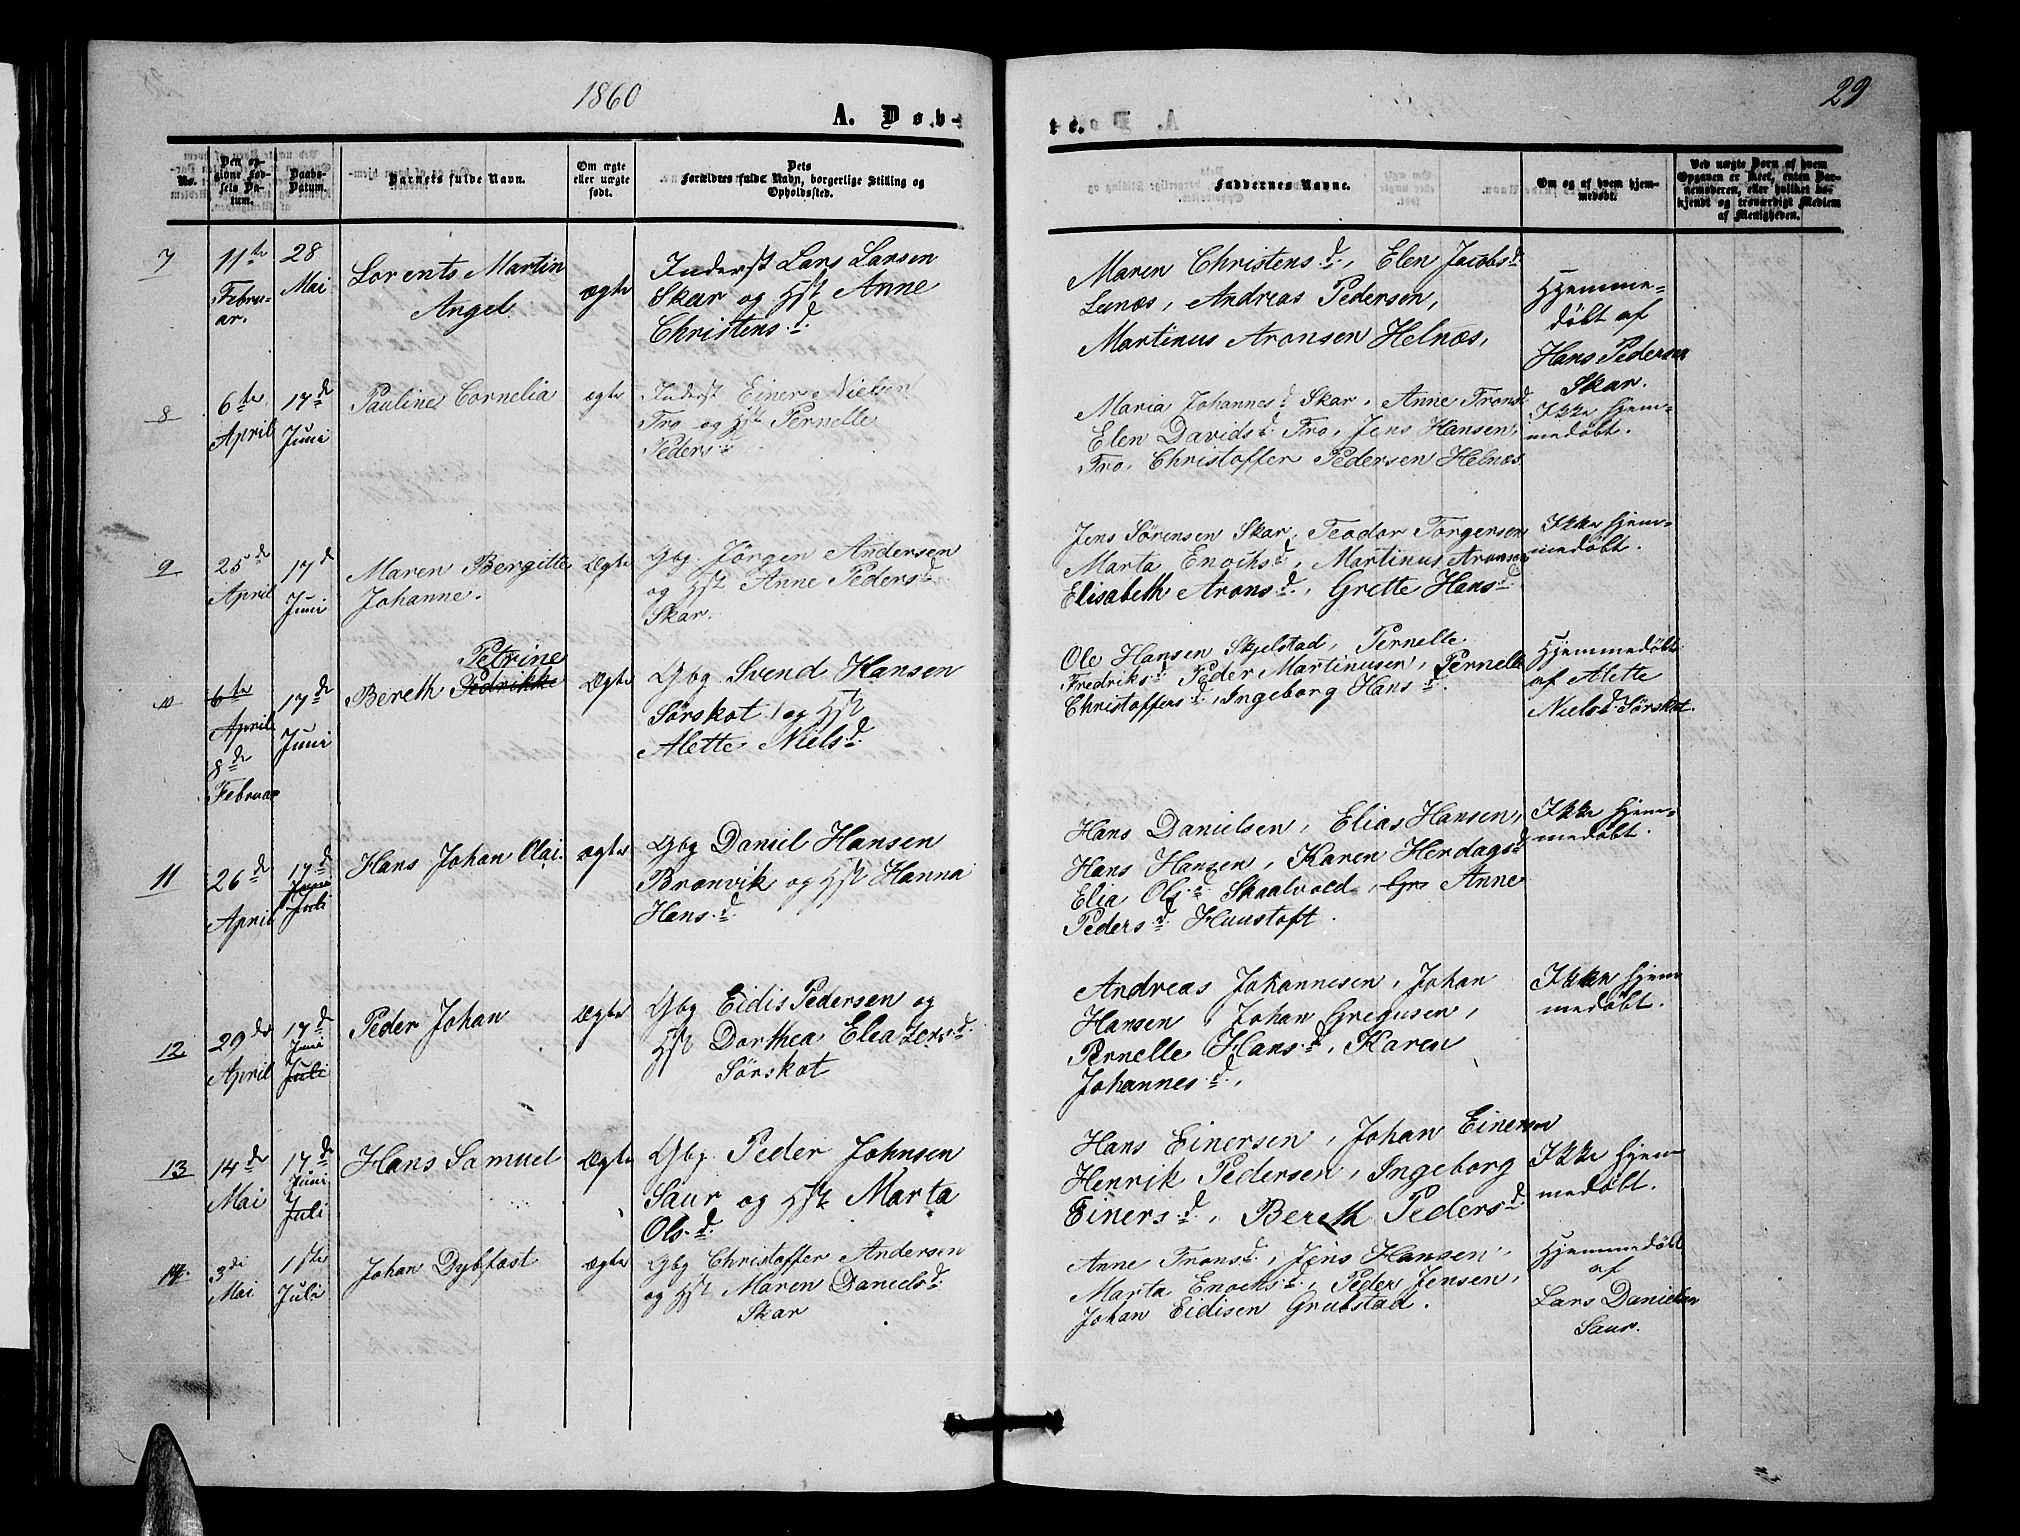 1860
29
A. Døb-
te.
No.
Den op-
givne Fød-
sels Da-
tum.
Daabs-
Datum.
Barnets fulde Navn.
Om ægte
eller uægte
født.
Dets
Forældres fulde Navn, borgerlige Stilling og
Opholdssted.
Faddernes Navne.
Om og af hvem hjem-
medøbt.
Ved uægte Børn af hvem
Opgaven er skeet, enten Bar-
nemoderen, eller hvilket be-
kjendt og troværdigt Medlem
af Menigheden.
7
11te
Febru-
ar.
28
Mai
Lorents Martin
Angel.
ægte
Inderst Lars Larsen
Skar og Hst Anne
Christensd.
Maren Christensd., Elen Jacobsd.
Lenæs, Andreas Pedersen,
Martinus Aronsen Helnæs,
Hjemme-
døbt af
Hans Pedersen
Skar.
8
6te
April
17de
Juni
Pauline Cornelia
ægte
Inderst Einer Nielsen
Fro og Hst Pernelle
Pedersd.
Maria Johannesd. Skar, Anne Tronsd.
Elen Davidsd. Fro, Jens Hansen,
Fro, Christoffer Pedersen Helnæs
Ikke hjem-
medøbt.
9
25de
April
17d
Juni
Maren Bergitte
Johanne.
Ægte
Gbg. Jørgen Andersen
og Hst Anne Pedersd.
Skar.
Jens Sørensen Skar, Teodor Torgersen
Marta Enochsd., Martinus Aronsen
Elisabeth Aronsd., Grette Hansd.
Ikke hjem-
medøbt.
10
6te
April
8de
Februar
17de
Juni
Petrine
Bereth Pedrikke
Ægte
Gbg Svend Hansen
Sørskot, og Hst
Alette Nielsd.
Ole Hansen Skjelstad, Pernelle
Fredriksd. Peder Martinusen, Pernelle
Christoffersd., Ingeborg Hansd.
Hjemmedøbt
af Alette
Nielsd. Sørskot.
11
26de
April
17de
Juni
Juli
Hans Johan Olai.
ægte
Gbg Daniel Hansen
Brænvik og Hst Hanna
Hansd.
Hans Danielsen, Elias Hansen,
Hans Hansen, Karen Herdagsd.
Elia Olsd. Skaalvold, Gr Anne
Pedersd. Huustoft.
Ikke hjem-
medøbt.
12
29de
April
17de
Juni
Juli
Peder Johan
Ægte
Gbg Eidis Pedersen og
Hst Dorthea Eleazersd.
Sørskot
Andreas Johannesen, Johan
Hansen, Johan Gregusen,
Pernelle Hansd., Karen
Johannesd.,
Ikke hjem
medøbt.
13
14de
Mai
17de
Juni
Juli
Hans Samuel
Ægte
Gbg. Peder Johnsen
Saur og Hst Marta
Olsd.
Hans Einersen, Johan Einersen
Henrik Pedersen, Ingeborg
Einersd., Bereth Pedersd.
Ikke hjem-
medøbt.
14.
3di
Mai
1ste
Juli
Johan Dybfest
ægte
Gbg Christoffer Andersen
og Hst Maren Danielsd.
Skar
Anne Tronsd., Jens Hansen,
Marta Enochsd., Peder Jensen,
Johan Eidisen Grubstad.
Hjemmedøbt
af
Lars Danielsen
Saur.